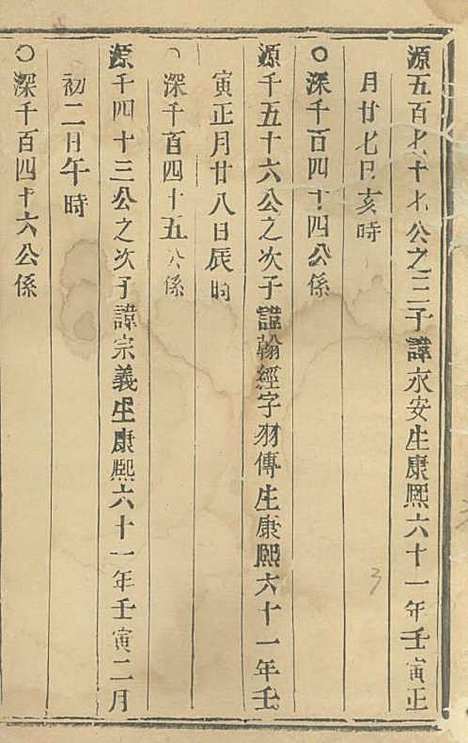 源五百七十七公之三子諱永安生康熙六十一年壬寅正
月廿七日亥時
○深千百四十四公係
源千五十六公之次子諱翰經字羽傳生康熙六十一年壬
寅正月廿八日辰時
○深千百四十五公係
源千四十三公之次子諱宗義生康熙六十一年壬寅二月
初二日午時
○深千百四十六公係
3